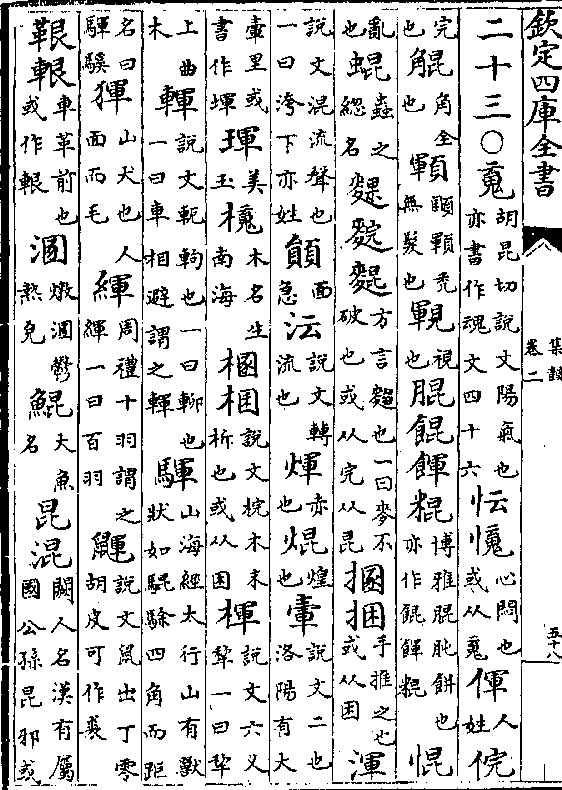 欽定四庫全書
集韻
卷二
五十八
二十三○䰟胡昆切說文陽氣也亦書作魂文四十六忶㥵心悶也或从䰟倱人姓俒
完也䚠角全也顐䫟顐禿無髮也䡣視也䐊餛餫粸博雅䐊肫餅也亦作餛餫粸惃
亂也蜫蟲之緫名䴹䴷䵪方言麴也一曰麥不破也或从完从昆㨡捆手推之也或从困渾
說文混流聲也一曰洿下亦姓䫟面急沄說文轉流也煇亦煌也焜也䡣說文二也洛陽有大
䡣里或書作㙔琿美玉櫆木名生南海㮯梱說文梡木未析也或从困楎說文六叉犂一曰犂
上曲木轋說文軶軥也一曰輑也一曰車相避謂之轋䮝山海經太行山有獸狀如麢四角而距
名曰䮝䮝㺔山犬也人面而毛緷周禮十羽謂之緷一曰百羽鼲說文鼠出丁零胡皮可作裘
䩰䡣車革前也或作䡣溷㷟溷鬱熱皃鯤大魚名昆混闕人名漢有屬國公孫昆邪或